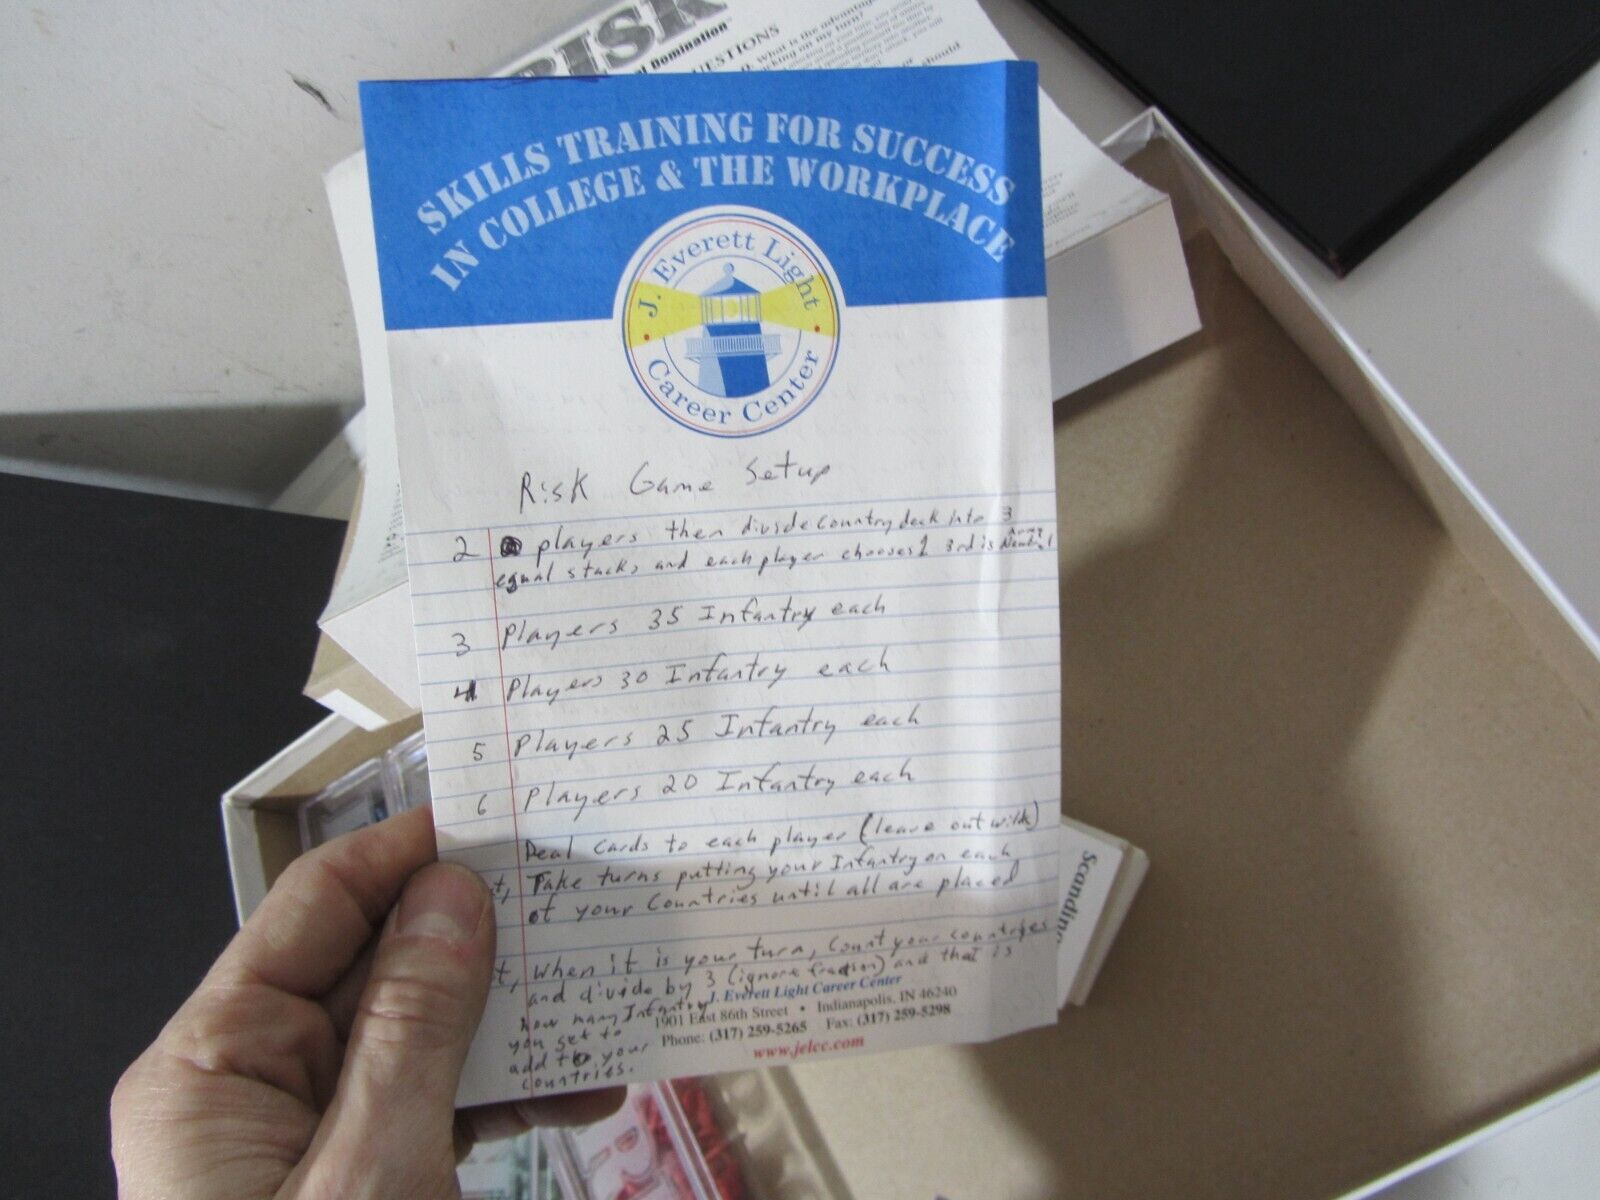 RISK
Domination
UESTIONS
what is the advantage
on my turn?
should
SKILLS TRAINING FOR SUCCESS
IN COLLEGE & THE WORKPLACE
J. Everett Light
Career Center
Risk Game Setup
2 players then divide country deck into 3
equal stacks and each player chooses 1 3rd is Army Neutral
3 Players 35 Infantry each
4 Players 30 Infantry each
5 Players 25 Infantry each
6 Players 20 Infantry each
Deal Cards to each player (leave out wilds)
t, Take turns putting your Infantry on each
of your Countries until all are placed
t, When it is your turn, Count your countries
and divide by 3 (ignore fraction) and that is
how many Infantry
you get to
add to your
countries.
J. Everett Light Career Center
1901 East 86th Street • Indianapolis, IN 46240
Phone: (317) 259-5265 Fax: (317) 259-5298
www.jelcc.com
Scandin